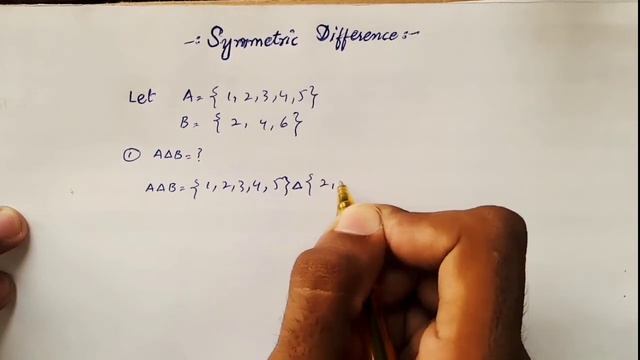 -: Symmetric Difference:-
Let A = { 1, 2, 3, 4, 5}
B = { 2, 4, 6}
① A∆B = ?
A∆B = { 1, 2, 3, 4, 5} ∆ { 2,